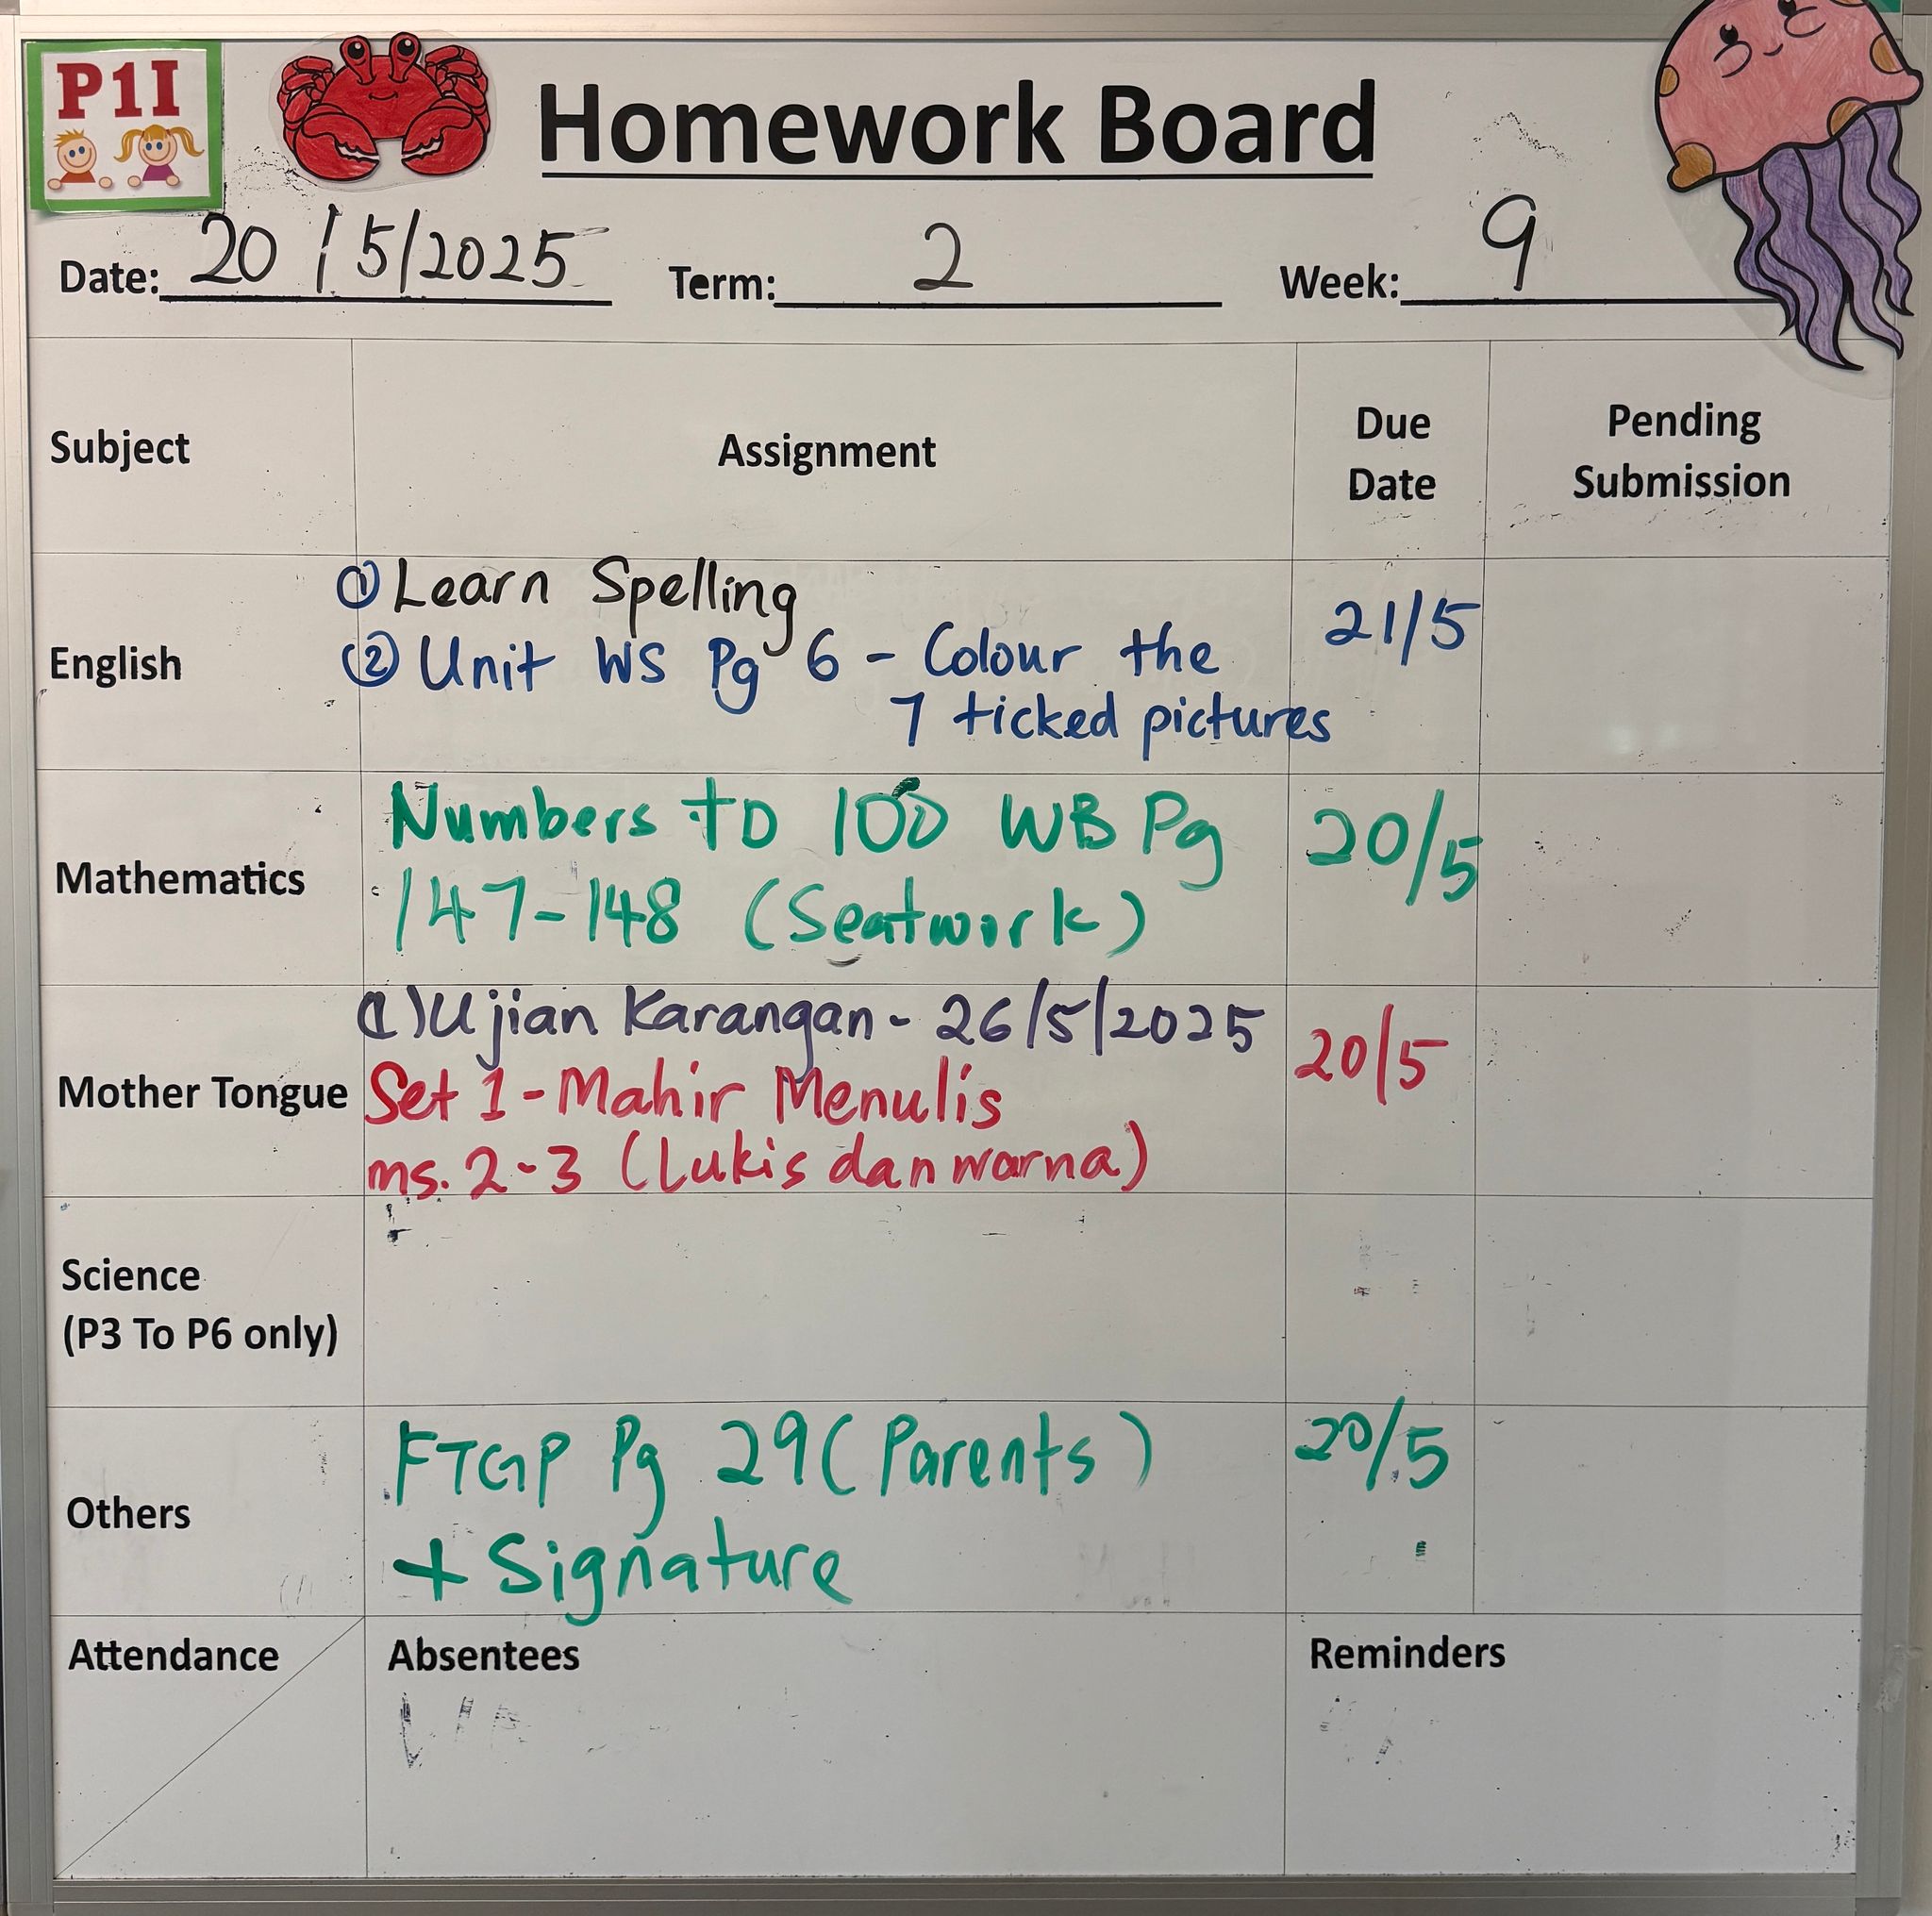 P1I
Homework Board
Date: 20/5/2025 Term: 2 Week: 9
Subject Assignment Due Date Pending Submission
English
① Learn Spelling
② Unit WS Pg 6 - Colour the
7 ticked pictures
21/5
Mathematics
Numbers to 100 WB Pg
147-148 (Seatwork)
20/5
Mother Tongue
(1) Ujian Karangan - 26/5/2025
Set 1 - Mahir Menulis
ms. 2-3 (Lukis dan warna)
20/5
Science
(P3 To P6 only)
Others
FTGP Pg 29 (Parents)
+ Signature
20/5
Attendance Absentees Reminders